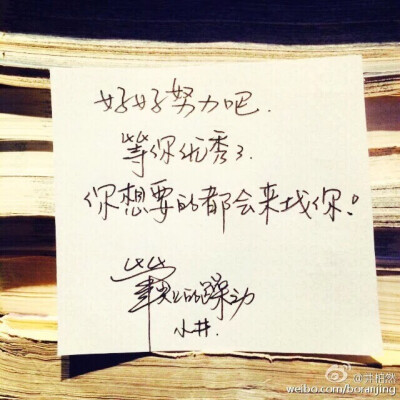 好好努力吧.
等你优秀了.
你想要的都会来找你!
上的躁动
小井.
@井柏然
weibo.com/boranjing